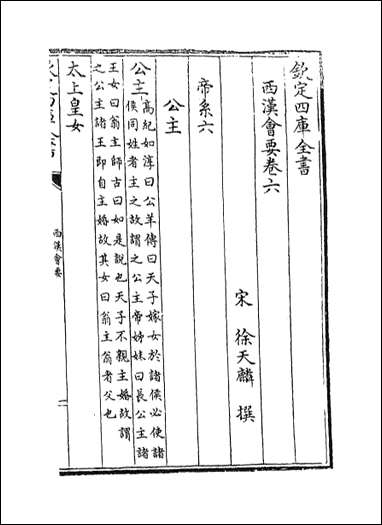 欽定四庫全書
西漢會要卷六
宋 徐天麟 撰
帝系六
公主
公主高紀如淳曰公羊傳曰天子嫁女於諸侯必使諸
侯同姓者主之故謂之公主帝姊妹曰長公主諸
王女曰翁主師古曰如是說也天子不親主婚故謂
之公主諸王即自主婚故其女曰翁主翁者父也
太上皇女
西漢會要